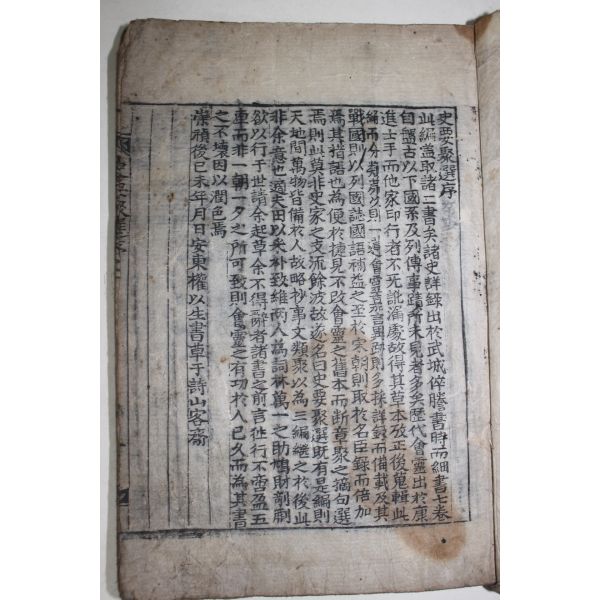 史要聚選序
此編盖取諸二書矣諸史詳錄出於武城倅謄書時而細書七卷
自盤古以下國系及列傳事蹟所未見者多矣歷代會靈出於康
進士手而他家印行者不无訛漏處故得其草本攷正後蒐輯此
編而分類
戰國則以列國誌國語補益之至於宋朝則取於名臣錄而倍加
焉其措語也為便於捷見不改會靈之舊本而断章聚之摘句選
焉則此莫非史家之支流餘波故遂名曰史要聚選既有是編則
天地間萬物皆備於人故略抄事文類聚以為三編繼之於後此
非余意也適夫田以采朴致維兩人為詞林萬一之助鳩財剞劂
欲以行于世請余起草余不得辭者諸書之前言徃行不啻盈五
車而非一朝一夕之所可致則會靈之有功於人已久而為其書
之不壞因以潤色焉
崇禎後己未年月日安東權以生書草于詩山客齋